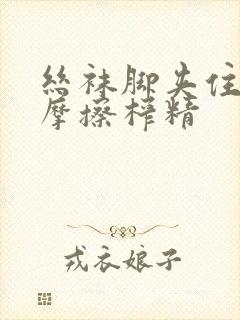 丝袜脚夹住
摩擦榨精
戎衣娘子